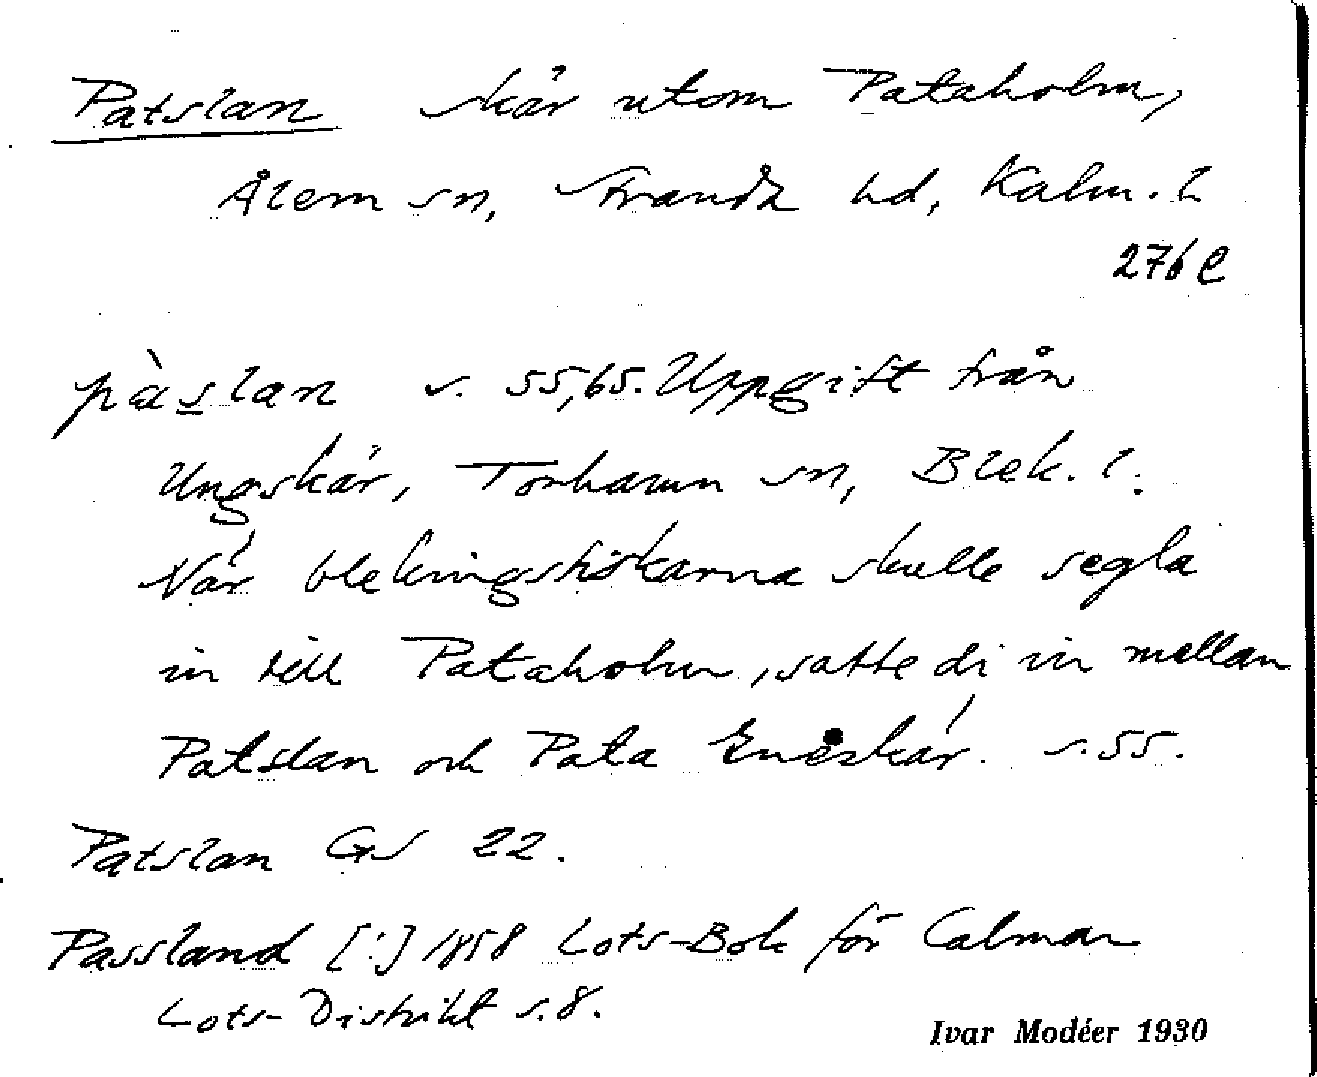 Patslan skär utom Pataholm,
Ålem sn, Strandа hd, Kalm. l.
276 C
pàslan s. 55, 65. Uppgift från
Ungskär, Torhamn sn, Blek. l.
När blekingshökarna skulle segla
in till Pataholm, satte di in mellan
Patslan och Pata Eneskär. s. 55.
Patslan GS 22.
Passland [!] 1858 Lots-Bok för Calmar
Lots-Distrikt s. 8.
Ivar Modéer 1930